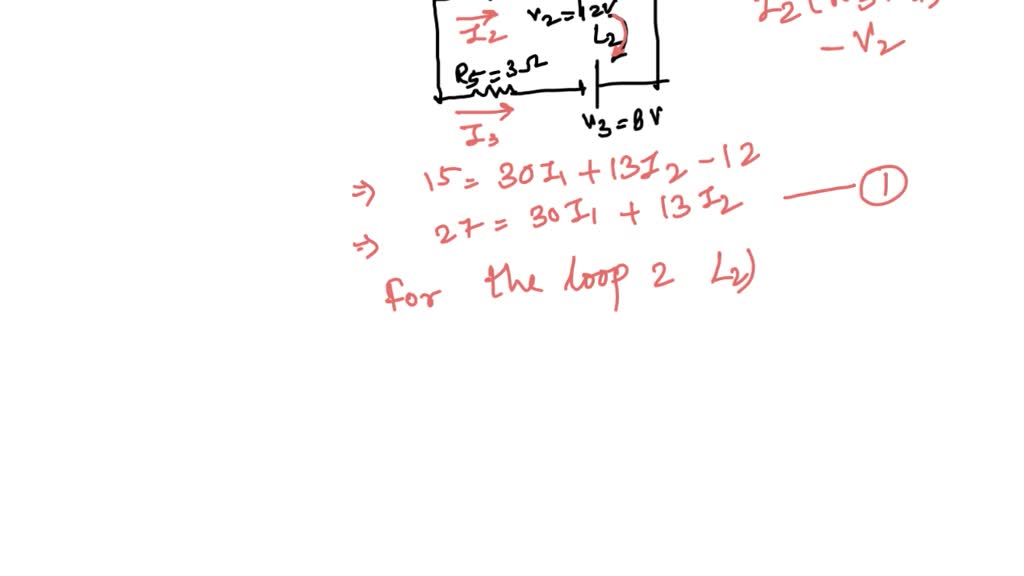 I2
V2=12V
L2)
- V2
R5=3Ω
I3
V3=8V
=> 15= 30I1 + 13I2 - 12
=> 27= 30I1 + 13I2 —— 1
for the loop 2 L2)